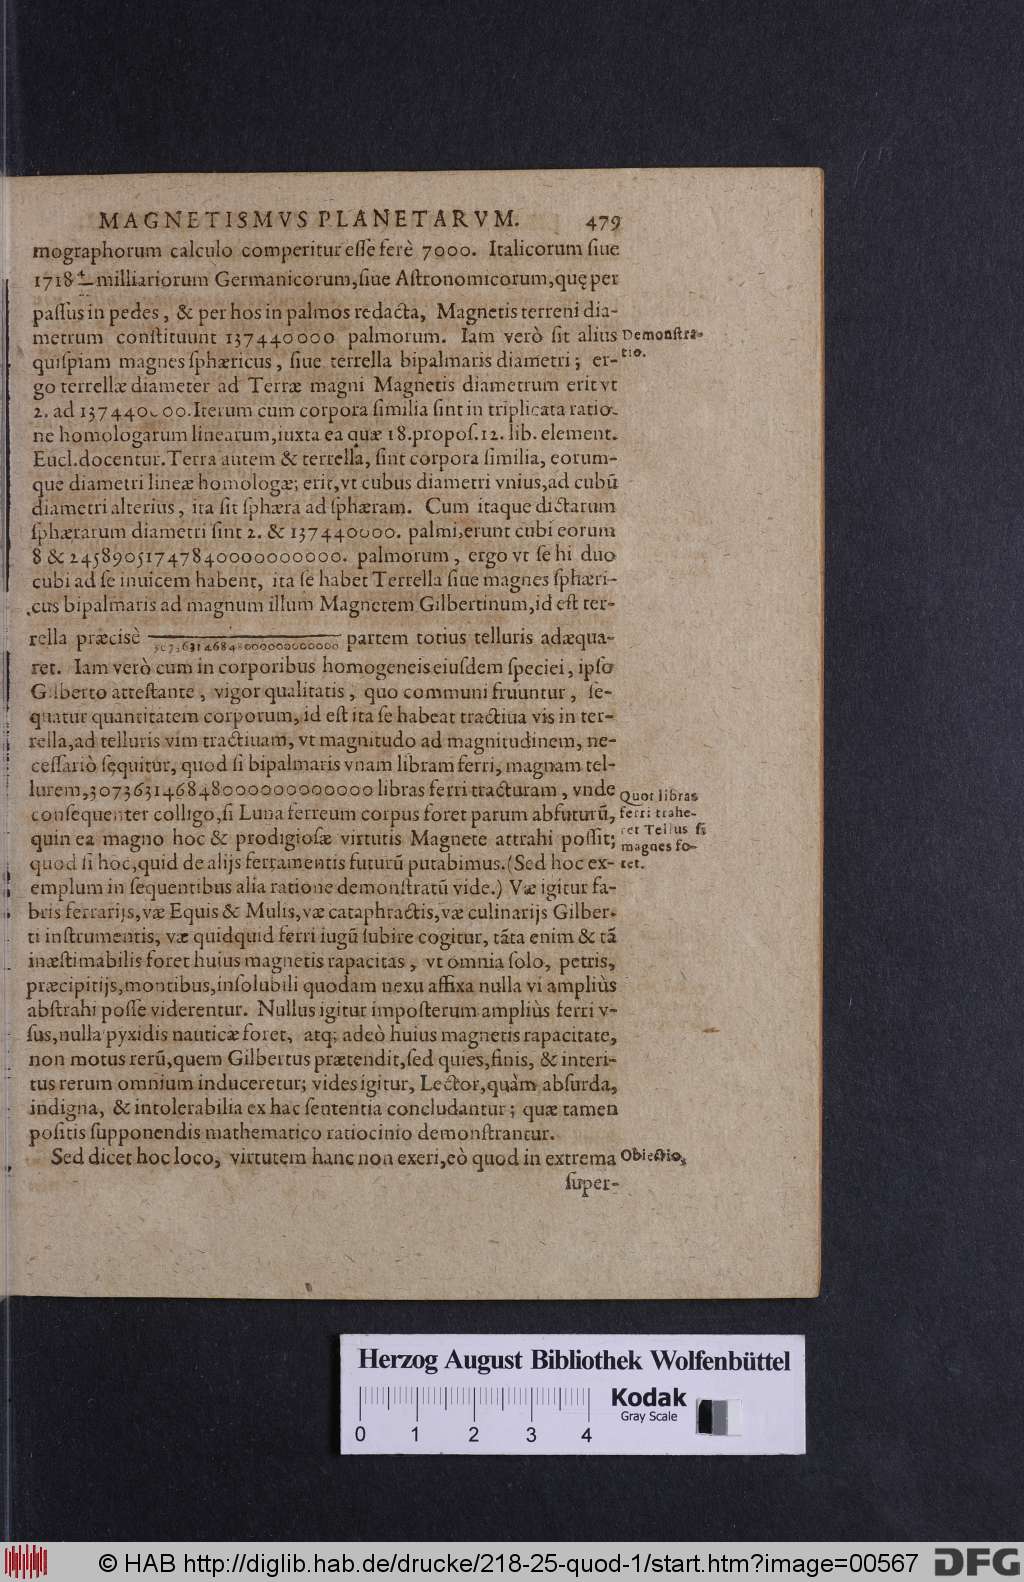 MAGNETISMVS PLANETARVM. 479
mographorum calculo comperitur eſſe ferè 7000. Italicorum ſiue
1718 milliariorum Germanicorum, ſiue Aſtronomicorum, quę per
paſſus in pedes, & per hos in palmos redacta, Magnetis terreni dia-
metrum conſtituunt 137440000 palmorum. Iam verò ſit alius
Demonſtra-
tio.
quiſpiam magnes ſphæricus, ſiue terrella bipalmaris diametri; er-
go terrellæ diameter ad Terræ magni Magnetis diametrum erit vt
2. ad 137440000. Iterum cum corpora ſimilia ſint in triplicata ratio-
ne homologarum linearum, iuxta ea quæ 18. propoſ. 12. lib. element.
Eucl. docentur. Terra autem & terrella, ſint corpora ſimilia, eorum-
que diametri lineæ homologæ; erit, vt cubus diametri vnius, ad cubũ
diametri alterius, ita ſit ſphæra ad ſphæram. Cum itaque dictarum
ſphærarum diametri ſint 2. & 137440000. palmi, erunt cubi eorum
8 & 2458905174784000000000000. palmorum, ergo vt ſe hi duo
cubi ad ſe inuicem habent, ita ſe habet Terrella ſiue magnes ſphæri-
cus bipalmaris ad magnum illum Magnetem Gilbertinum, id eſt ter-
rella præcisè partem totius telluris adæqua-
ret. Iam verò cum in corporibus homogeneis eiuſdem ſpeciei, ipſo
Gilberto atteſtante, vigor qualitatis, quo communi fruuntur, ſe-
quatur quantitatem corporum, id eſt ita ſe habeat tractiua vis in ter-
rella, ad telluris vim tractiuam, vt magnitudo ad magnitudinem, ne-
ceſſariò ſequitur, quod ſi bipalmaris vnam libram ferri, magnam tel-
lurem, 307363146848000000000000 libras ferri tracturam, vnde
Quot libras
ferri trahe-
ret Tellus ſi
magnes fo-
ret.
conſequenter colligo, ſi Luna ferreum corpus foret parum abfuturũ,
quin ea magno hoc & prodigioſæ virtutis Magnete attrahi poſſit;
quod ſi hoc, quid de alijs ferramentis futurũ putabimus. (Sed hoc ex-
emplum in ſequentibus alia ratione demonſtratũ vide.) Væ igitur fa-
bris ferrarijs, væ Equis & Mulis, væ cataphractis, væ culinarijs Gilber-
ti inſtrumentis, væ quidquid ferri iugũ ſubire cogitur, tãta enim & tã
inæſtimabilis foret huius magnetis rapacitas, vt omnia ſolo, petris,
præcipitijs, montibus, inſolubili quodam nexu affixa nulla vi ampliùs
abſtrahi poſſe viderentur. Nullus igitur impoſterum ampliùs ferri v-
ſus, nulla pyxidis nauticæ foret, atq; adeò huius magnetis rapacitate,
non motus rerũ, quem Gilbertus prætendit, ſed quies, finis, & interi-
tus rerum omnium induceretur; vides igitur, Lector, quàm abſurda,
indigna, & intolerabilia ex hac ſententia concludantur; quæ tamen
poſitis ſupponendis mathematico ratiocinio demonſtrantur.
Sed dicet hoc loco, virtutem hanc non exeri, eò quod in extrema
Obiectio,
ſuper-
Herzog August Bibliothek Wolfenbüttel
0 1 2 3 4
Kodak
Gray Scale
© HAB http://diglib.hab.de/drucke/218-25-quod-1/start.htm?image=00567
DFG